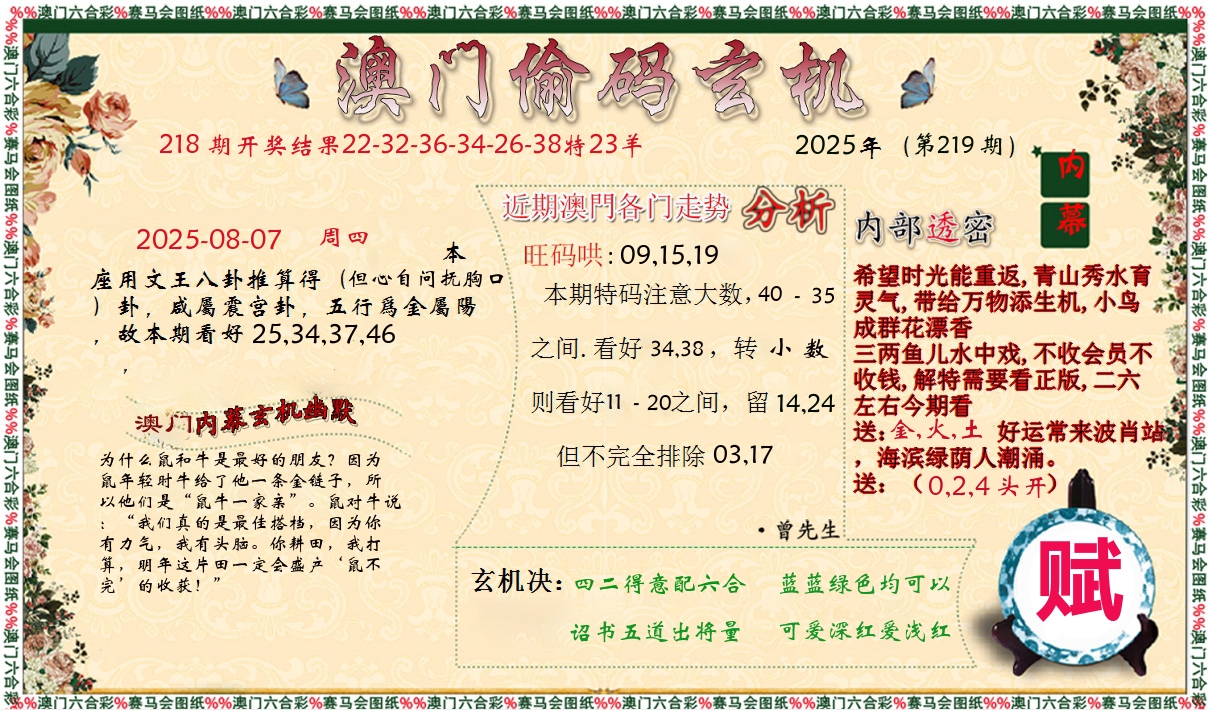 %%澳门六合彩%赛马会图纸%%澳门六合彩%赛马会图纸%%澳门六合彩%赛马会图纸%%澳门六合彩%赛马会图纸%%澳门六合彩%赛马会图纸%%澳门六合彩%赛马会图纸%%
澳门偷码玄机
218 期开奖结果22-32-36-34-26-38特23羊
2025年（第219 期）
内
幕
2025-08-07 周四
本
座用文王八卦推算得（但心自问抚胸口
）卦，咸屬震宫卦，五行爲金屬陽
，故本期看好 25,34,37,46
，
澳门内幕玄机幽默
为什么鼠和牛是最好的朋友？因为
鼠年轻时牛给了他一条金链子，所
以他们是“鼠牛一家亲”。鼠对牛说
：“我们真的是最佳搭档，因为你
有力气，我有头脑。你耕田，我打
算，明年这片田一定会盛产‘鼠不
完’的收获！”
近期澳門各门走势 分析
旺码哄: 09,15,19
本期特码注意大数, 40 - 35
之间. 看好 34,38，转 小 数
则看好11 - 20之间，留 14,24
但不完全排除 03,17
·曾先生
内部透密
希望时光能重返, 青山秀水育
灵气, 带给万物添生机, 小鸟
成群花漂香
三两鱼儿水中戏, 不收会员不
收钱, 解特需要看正版, 二六
左右今期看
送: 金, 火, 土 好运常来波肖站
，海滨绿荫人潮涌。
送：（0,2,4 头开）
赋
玄机决: 四二得意配六合 蓝蓝绿色均可以
诏书五道出将量 可爱深红爱浅红
%%澳门六合彩%赛马会图纸%%澳门六合彩%赛马会图纸%%澳门六合彩%赛马会图纸%%澳门六合彩%赛马会图纸%%澳门六合彩%赛马会图纸%%澳门六合彩%赛马会图纸%%